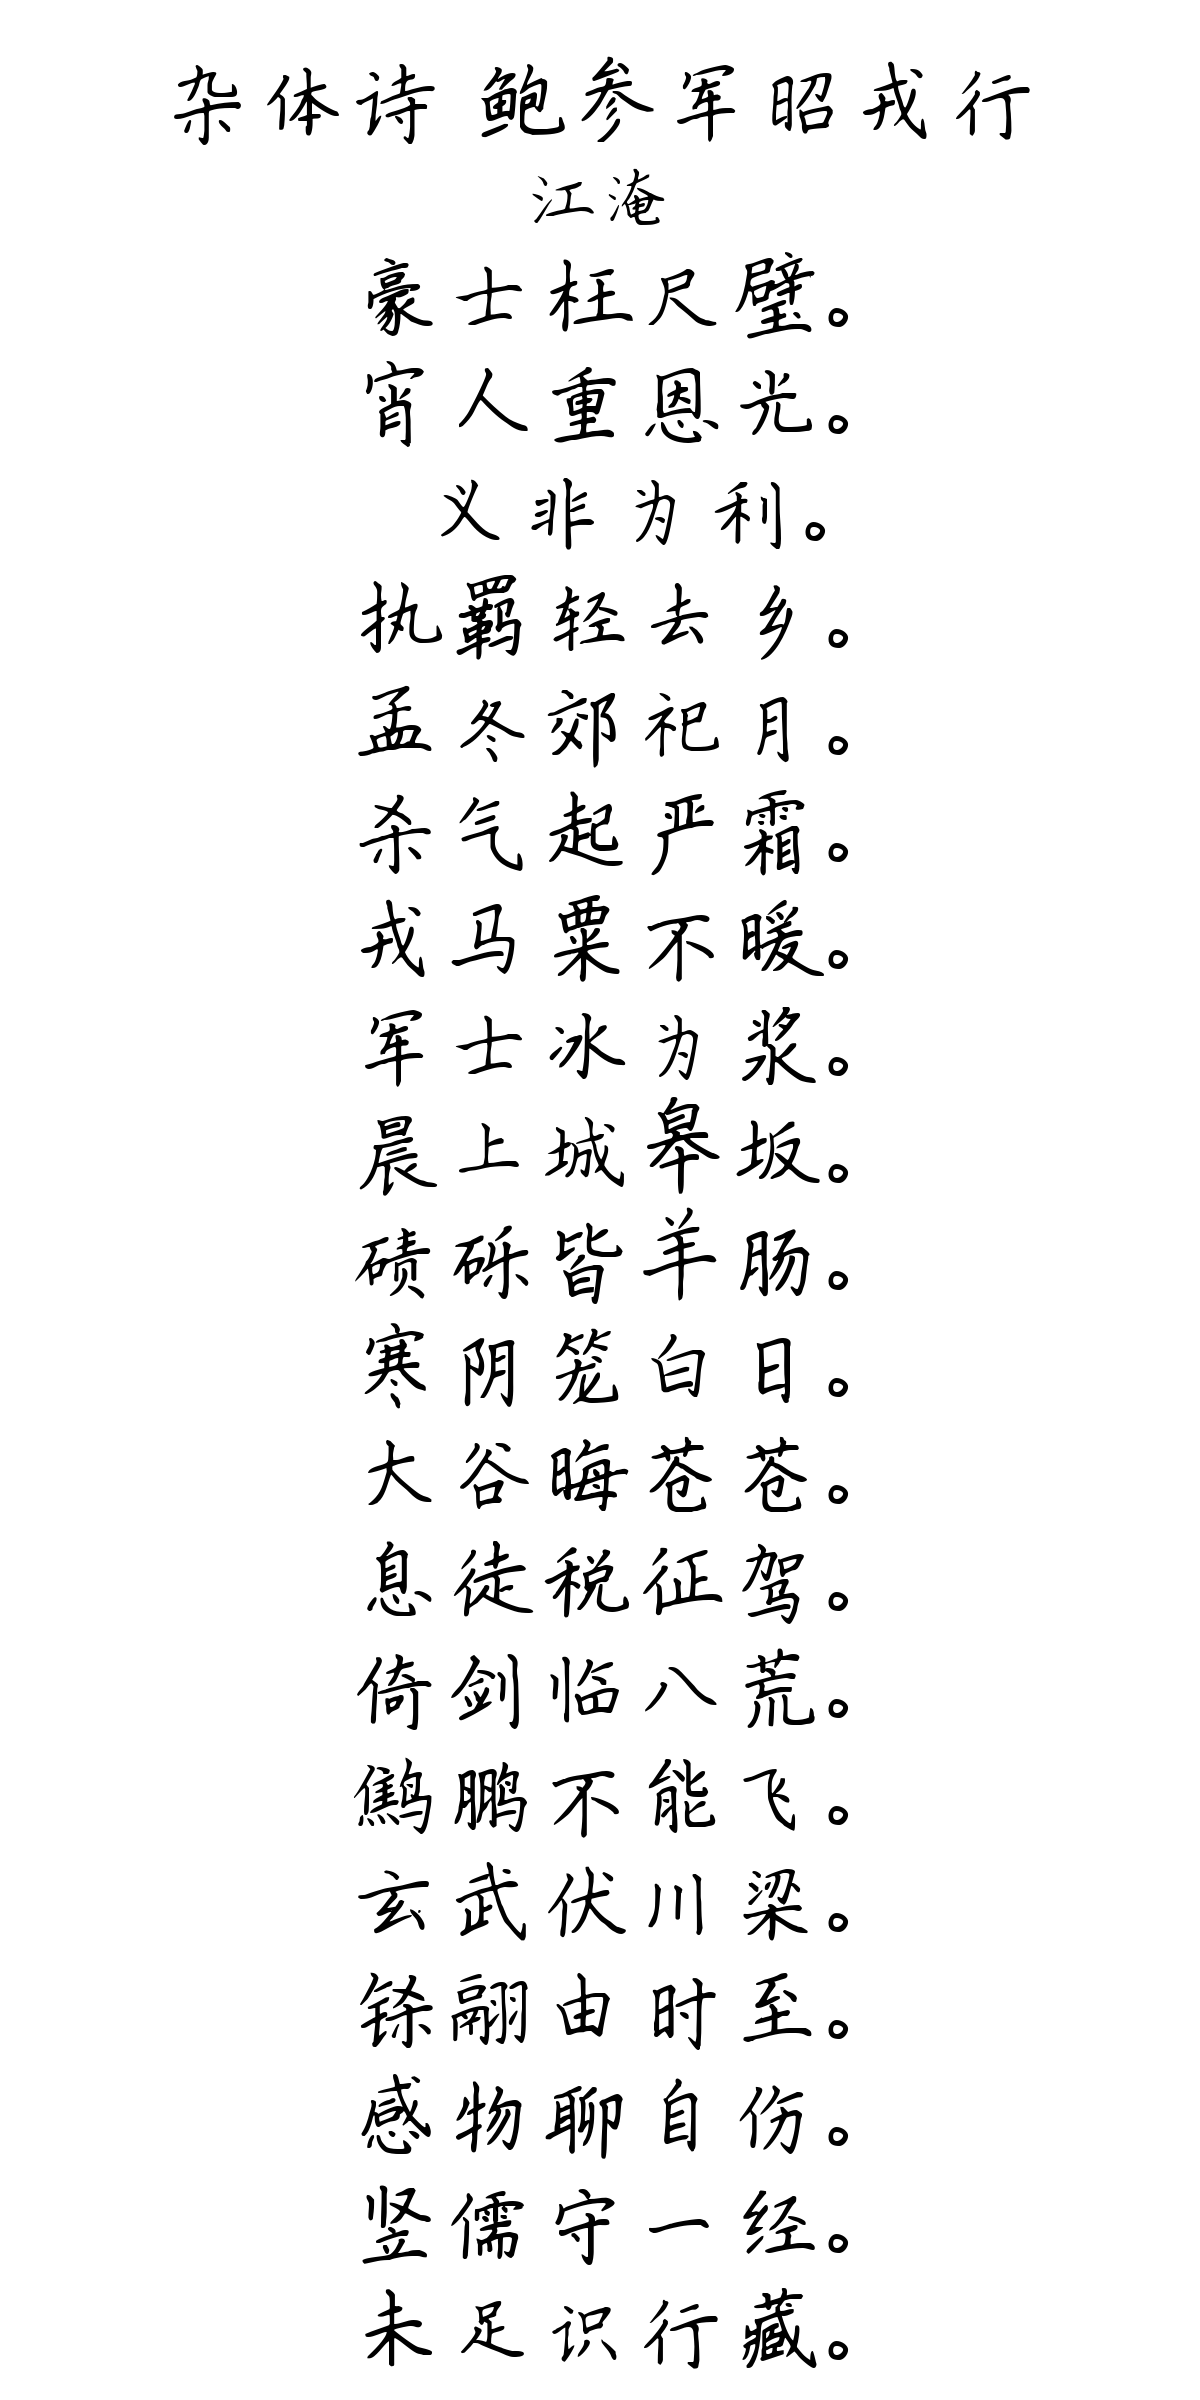 杂体诗 鲍参军昭戎行
江淹
豪士枉尺璧。
宵人重恩光。
义非为利。
执羁轻去乡。
孟冬郊祀月。
杀气起严霜。
戎马粟不暖。
军士冰为浆。
晨上城皋坂。
碛砾皆羊肠。
寒阴笼白日。
大谷晦苍苍。
息徒税征驾。
倚剑临八荒。
鹪鹏不能飞。
玄武伏川梁。
铩翮由时至。
感物聊自伤。
竖儒守一经。
未足识行藏。